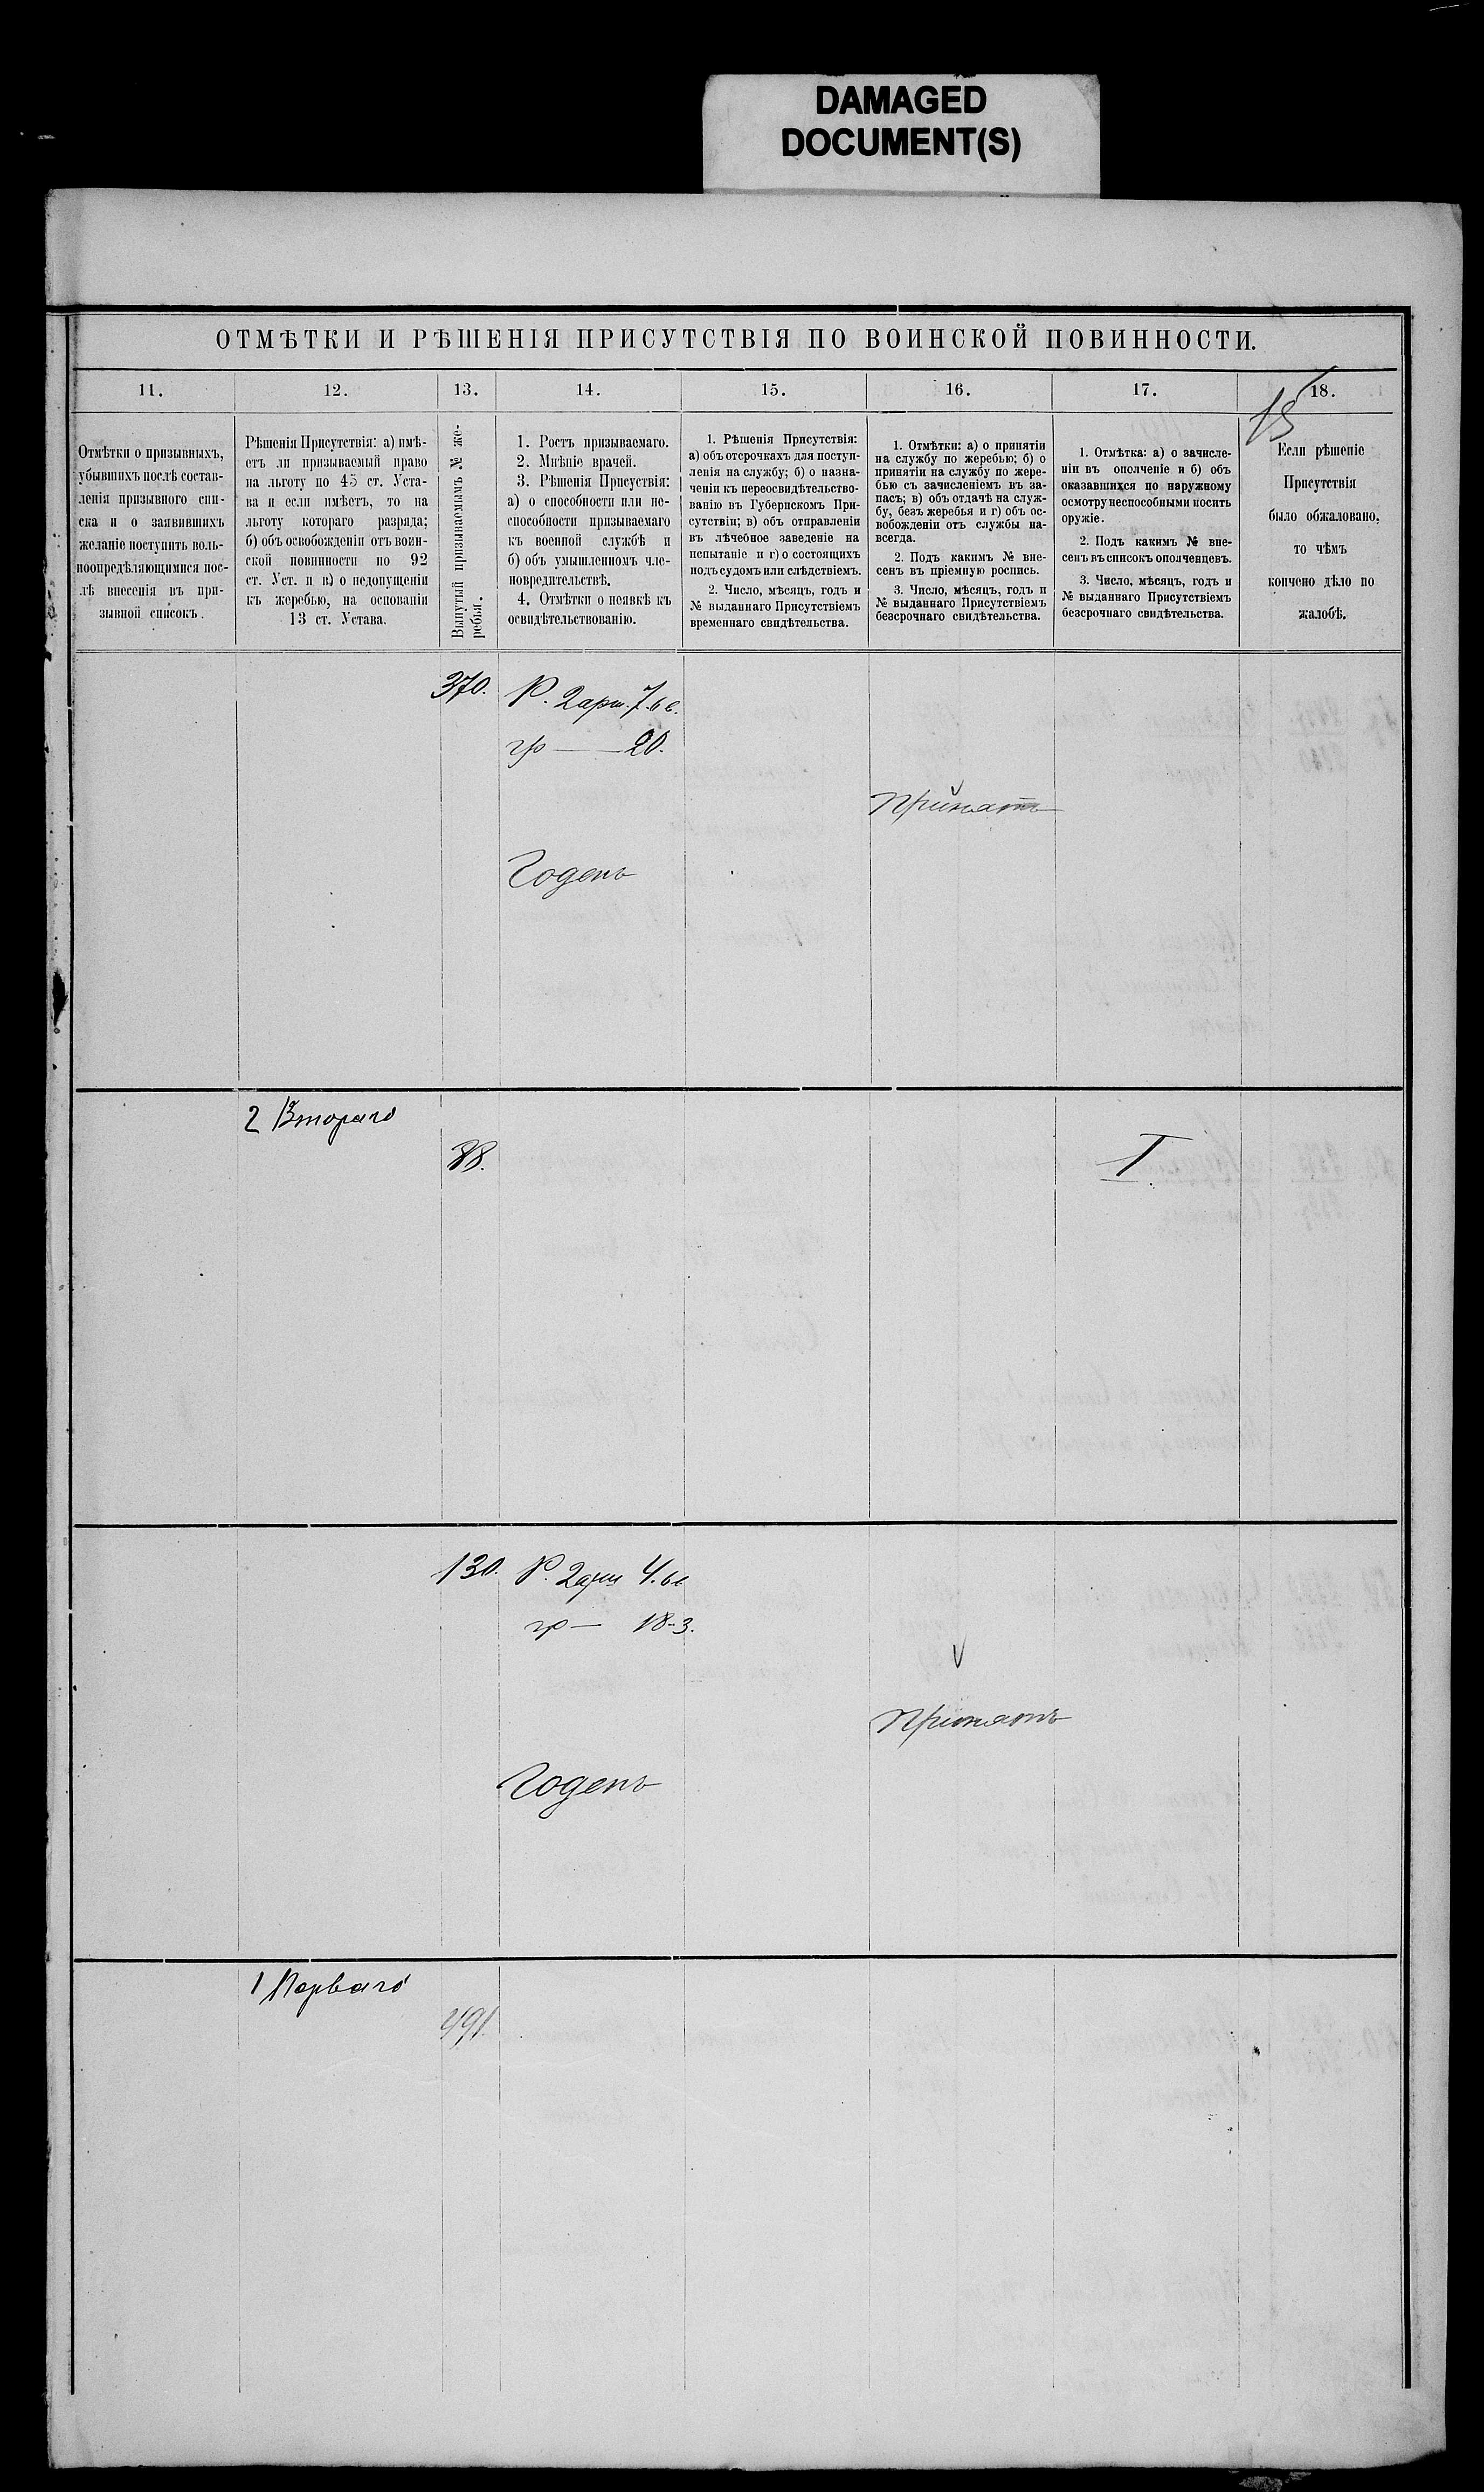 DAMAGED
DOCUMENT(S)
ОТМѢТКИ И РѢШЕНІЯ ПРИСУТСТВІЯ ПО ВОИНСКОЙ ПОВИННОСТИ.
11.
12.
13.
14.
15.
16.
17.
18.
15
Отмѣтки о призывныхъ,
убывшихъ послѣ состав-
ленія призывного спи-
ска и о заявившихъ
желаніе поступить воль-
ноопредѣляющимися пос-
лѣ внесенія въ при-
зывной списокъ.
Рѣшенія Присутствія: а) имѣ-
етъ ли призываемый право
на льготу по 45 ст. Уста-
ва и если имѣетъ, то на
льготу котораго разряда;
б) объ освобожденіи отъ воин-
ской повинности по 92
ст. Уст. и в) о недопущеніи
къ жеребью, на основаніи
13 ст. Устава.
Вынутый призываемымъ № же-
ребья.
1. Ростъ призываемаго.
2. Мнѣніе врачей.
3. Рѣшенія Присуствія:
а) о способности или не-
способности призываемаго
къ военной службѣ и
б) объ умышленномъ чле-
новредительствѣ.
4. Отмѣтки о неявкѣ къ
освидѣтельствованію.
1. Рѣшенія Присутствія:
а) объ отсрочкахъ для поступ-
ленія на службу; б) о назна-
ченіи къ переосвидѣтельство-
ванію въ Губернскомъ При-
сутствіи; в) объ отправленіи
въ лѣчебное заведеніе на
испытаніе и г) о состоящихъ
подъ судомъ или слѣдствіемъ.
2. Число, мѣсяцъ, годъ и
№ выданнаго Присутствіемъ
временнаго свидѣтельства.
1. Отмѣтки: а) о принятіи
на службу по жеребью; б) о
принятіи на службу по жере-
бью съ зачисленіемъ въ за-
пасъ; в) объ отдачѣ на служ-
бу, безъ жеребья и г) объ ос-
вобожденіи отъ службы на-
всегда.
2. Подъ какимъ № вне-
сенъ въ пріемную роспись.
3. Число, мѣсяцъ, годъ и
№ выданнаго Присутствіемъ
безсрочнаго свидѣтельства.
1. Отмѣтка: а) о зачисле-
ніи въ ополченіе и б) объ
оказавшихся по наружному
осмотру неспособными носить
оружіе.
2. Подъ какимъ № вне-
сенъ въ списокъ ополченцевъ.
3. Число, мѣсяцъ, годъ и
№ выданнаго Присутствіемъ
безсрочнаго свидѣтельства.
Если рѣшеніе
Присутствія
было обжаловано,
то чѣмъ
кончено дѣло по
жалобѣ.
370. Р. 2 арш. 7. ве.
гр — 20.
Принятъ
Годенъ
2 Втораго
88.
I.
130. Р. 2 арш 4. ве
гр — 18-3.
Принятъ
Годенъ
1 Перваго
491.